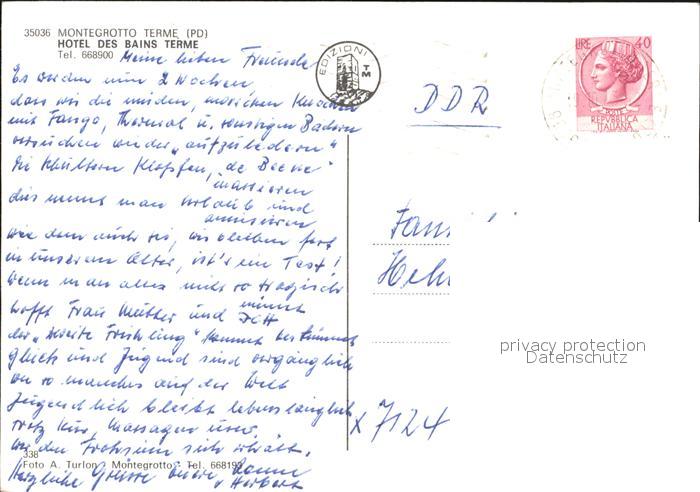 35036 MONTEGROTTO TERME (PD)
HOTEL DES BAINS TERME
Tel. 668900
Meine lieben Freunde
Es werden nun 2 Wochen,
dass wir die müden, morschen Knochen
mit Fango, Thermal u. sonstigen Bädern
versuchen wieder „aufzubedern"
die Schultern klopfen, de Beene
massieren
dies nennt man Urlaub und
amüsieren
wie dem auch sei, wir bleiben fest
in unserem Alter, ist's ein Test!
wenn man alles nicht so tragisch
nimmt
hofft Frau Mutter und
der „zweite Frühling" kommt bestimmt
Glück und Jugend sind vergänglich
wie so manches auf der Welt
Jugendlich bleibt lebenslänglich
trotz Kur, Massagen usw.
wer den Frohsinn sich erhält.
Herzliche Grüsse Eure
u Herbert
338
Foto A. Turlon - Montegrotto - Tel. 668193
EDIZIONI
TM
DDR
LIRE 40
POSTE
REPVBBLICA
ITALIANA
Fam
Heh
x 7124
privacy protection
Datenschutz